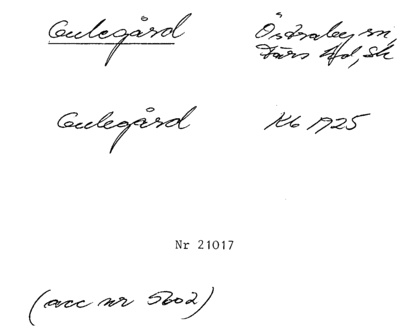 Gulegård Östraby sn,
Färs hd, Sk
Gulegård Kb 1925
Nr 21017
(acc nr 5602)